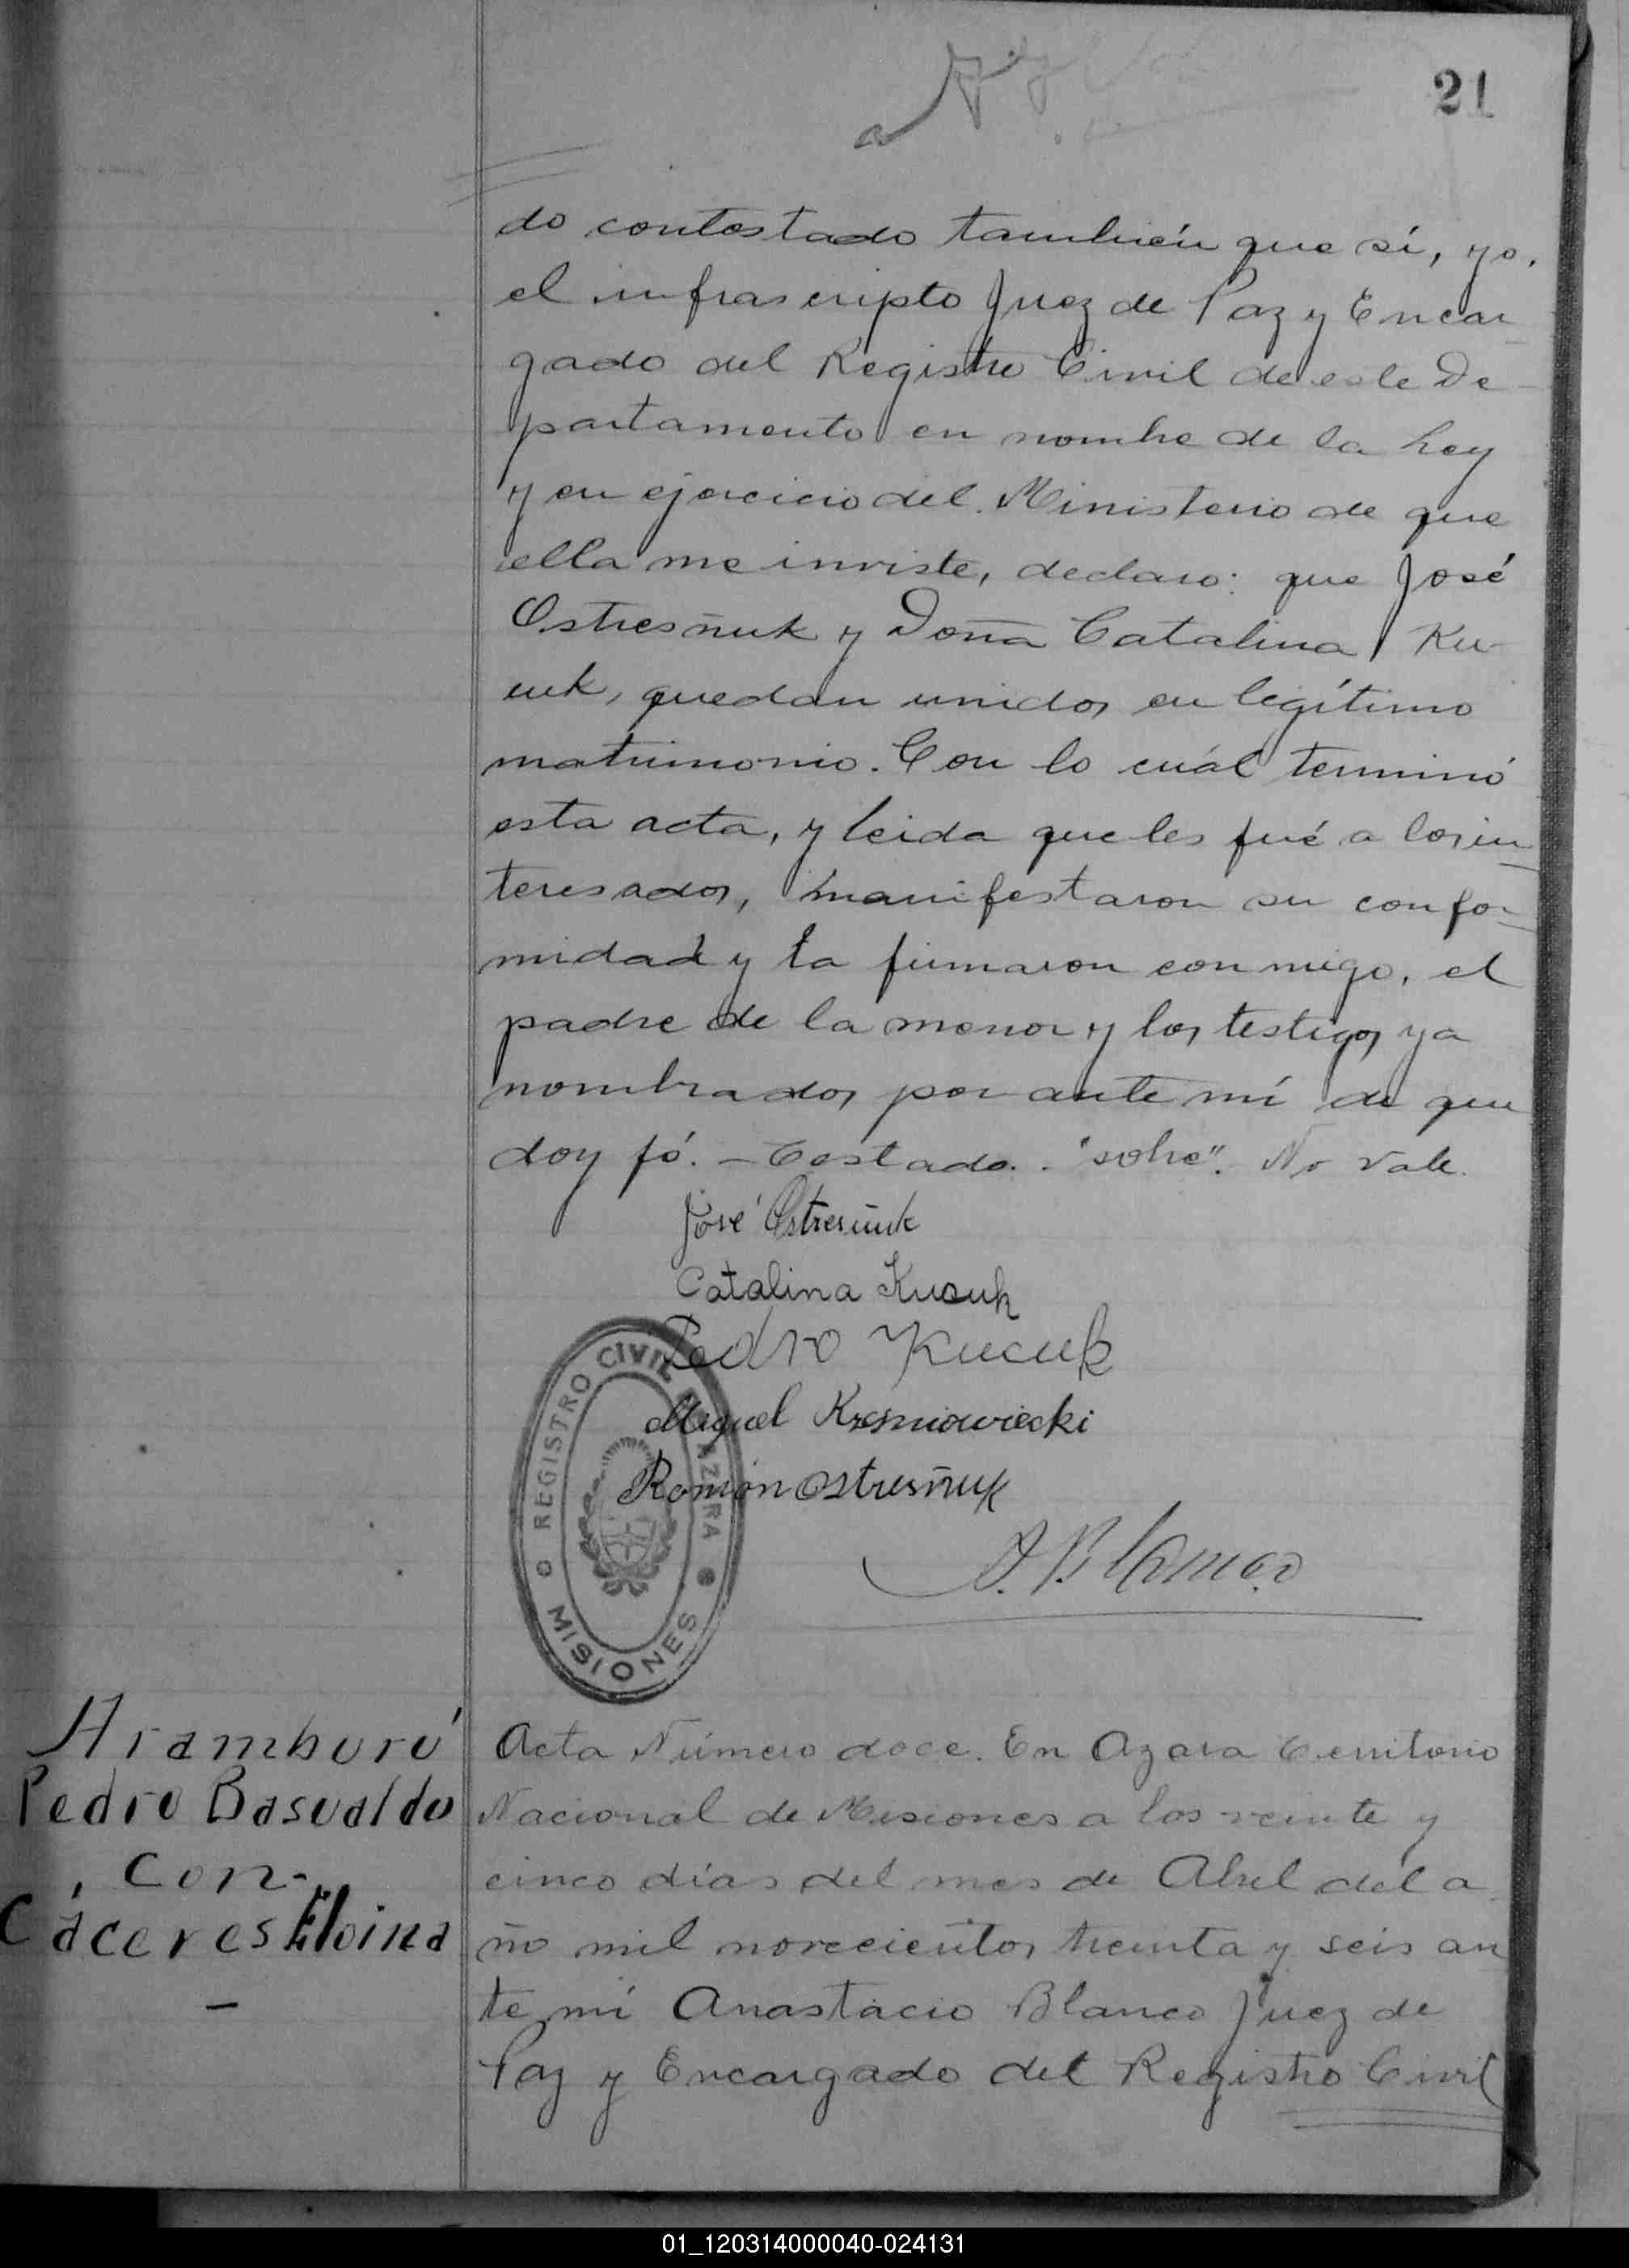 21
do contestado también que sí, yo,
el infrascripto Juez de Paz y Encar
gado del Registro Civil de este De
partamento en nombre de la Ley
y en ejercicio del Ministerio de que
ella me inviste, declaro: que José
Ostresñuk y Doña Catalina Ku-
cuk, quedan unidos en legítimo
matrimonio. Con lo cuál terminó
esta acta, y leida que les fué a los in
teresados, manifestaron su confor
midad y la firmaron conmigo, el
padre de la menor y los testigos ya
nombrados por ante mí de que
doy fé. - Testado. "sobre". No vale.
José Ostresñuk
Catalina Kucuk
Pedro Kucuk
Miguel Kresniowiecki
Román Ostresñuk
A. Blanco
REGISTRO CIVIL AZARA
MISIONES
Aramburú
Pedro Basualdo
con
Cáceres Eloina
Acta Número doce. En Azara Territorio
Nacional de Misiones a los veinte y
cinco días del mes de Abril del a
ño mil novecientos treinta y seis an
te mí Anastacio Blanco Juez de
Paz y Encargado del Registro Civil
01_120314000040-024131